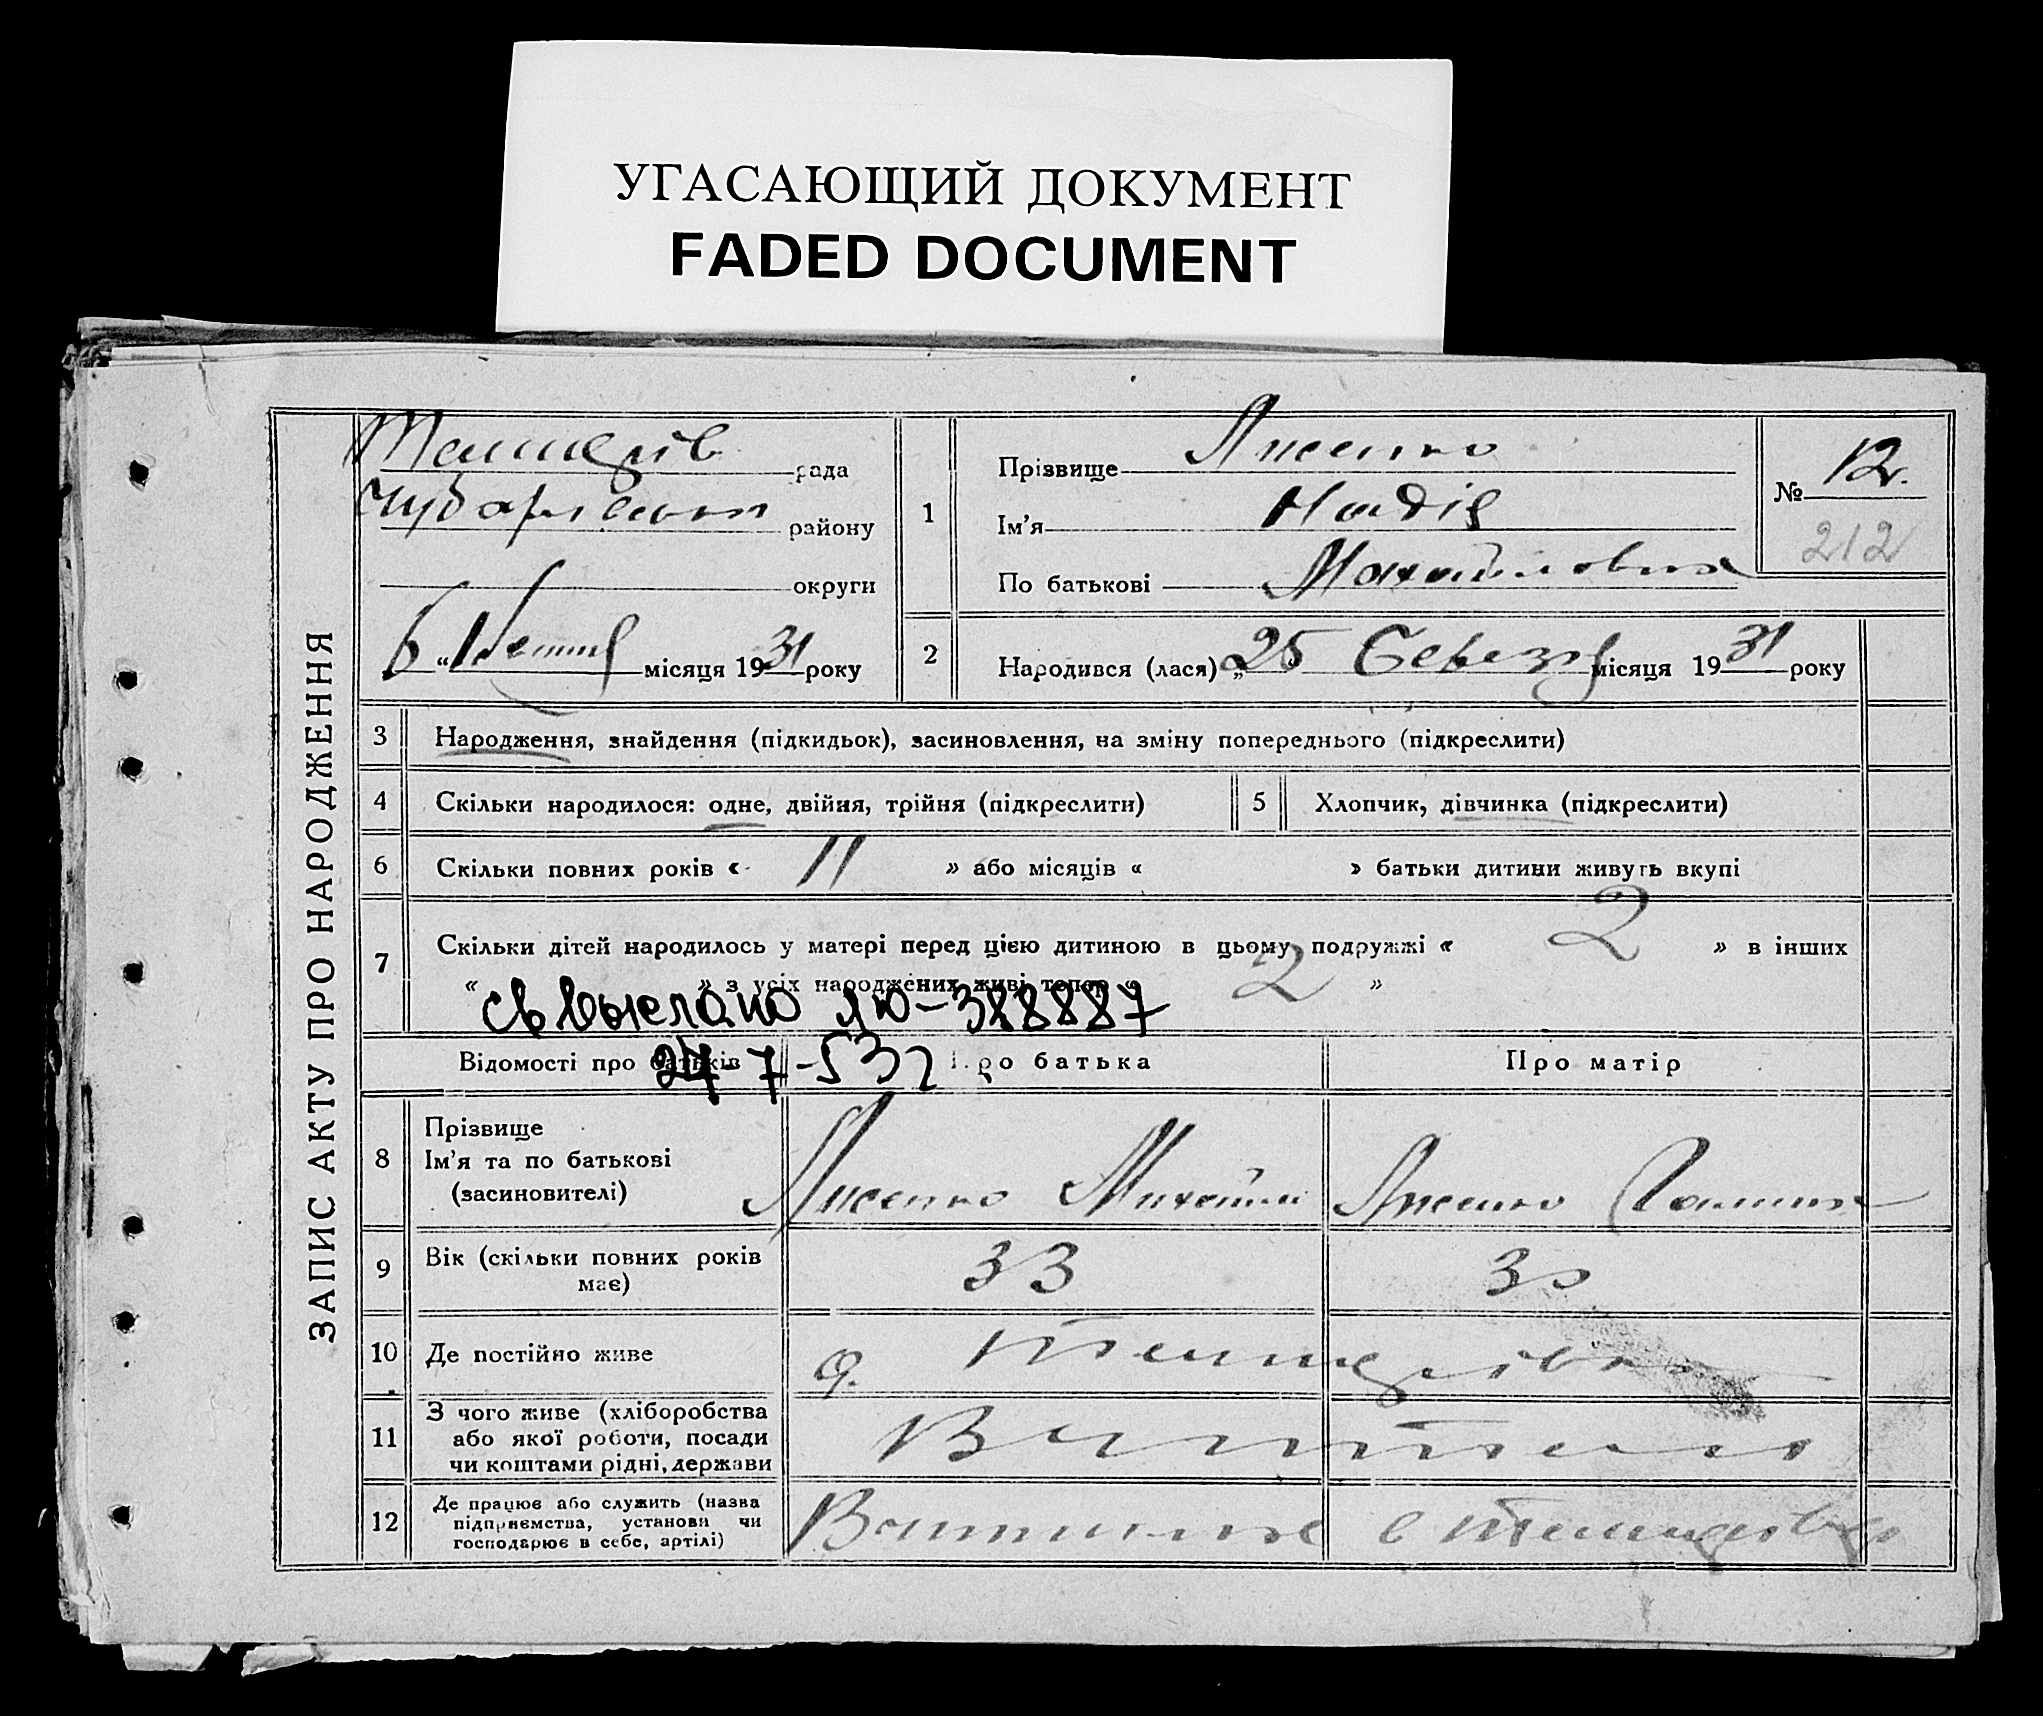 УГАСАЮЩИЙ ДОКУМЕНТ
FADED DOCUMENT
ЗАПИС АКТУ ПРО НАРОДЖЕННЯ
рада
району
округи
6 " місяця 1931 року
1
Прізвище Лисенко
Ім'я Надія
По батькові Михайловна
№ 12.
212
2
Народився (лася) „ 25 Березня місяця 1931 року
3 Народження, знайдення (підкидьок), засиновлення, на зміну попереднього (підкреслити)
4 Скільки народилося: одне, двійня, трійня (підкреслити)
5 Хлопчик, дівчинка (підкреслити)
6 Скільки повних років « 11 » або місяців « » батьки дитини живуть вкупі
7 Скільки дітей народилось у матері перед цією дитиною в цьому подружжі « 2 » в інших
« » з усіх народжених живі тепер « 2 »
св выслано ЯЮ-388887
Відомості про батьків
27-7-53г
Про батька
Про матір
8 Прізвище
Ім'я та по батькові
(засиновителі)
Лисенко Михайло
Лисенко Галина
9 Вік (скільки повних років
має)
33
30
10 Де постійно живе
11 З чого живе (хліборобства
або якої роботи, посади
чи коштами рідні, держави
12 Де працює або служить (назва
підприємства, установи чи
господарює в себе, артілі)